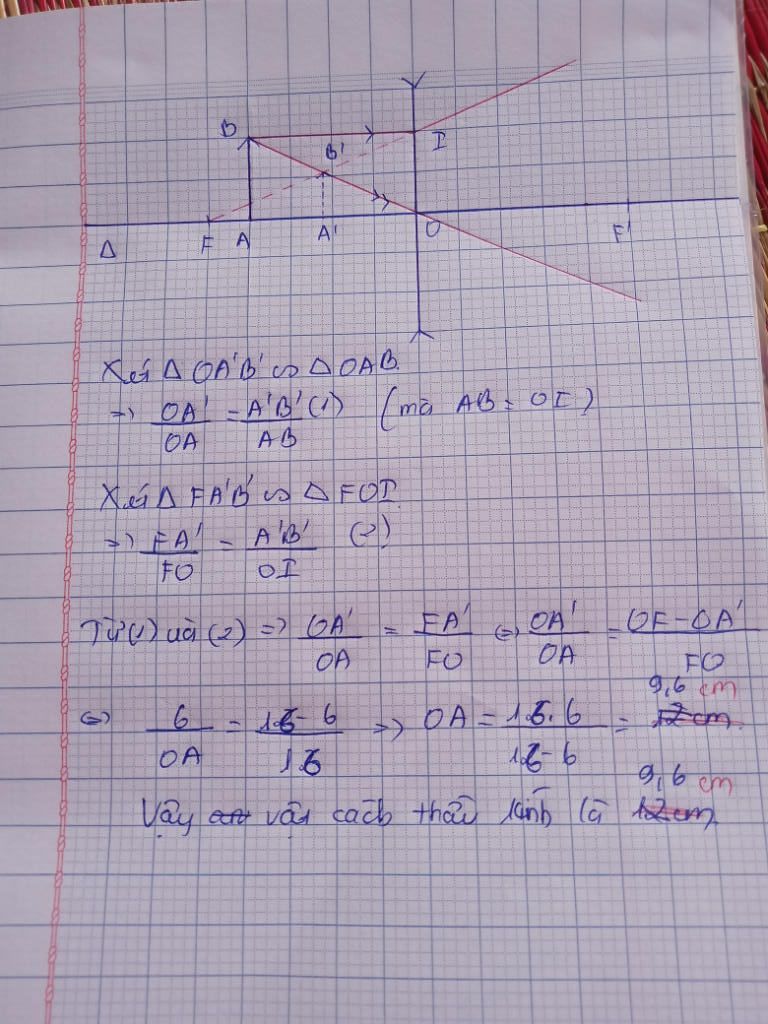 B I
B'
Δ F A A' O F'
Xét Δ OA'B' ∽ Δ OAB.
=> OA'/OA = A'B'/AB (1) (mà AB = OI)
Xét Δ FA'B' ∽ Δ FOI
=> FA'/FO = A'B'/OI (2)
Từ (1) và (2) => OA'/OA = FA'/FO <=> OA'/OA = OF - OA'/FO
<=> 6/OA = 16 - 6/16 => OA = 16.6/16 - 6 = 12 cm. 9,6 cm
Vậy vật cách thấu kính là 12 cm. 9,6 cm